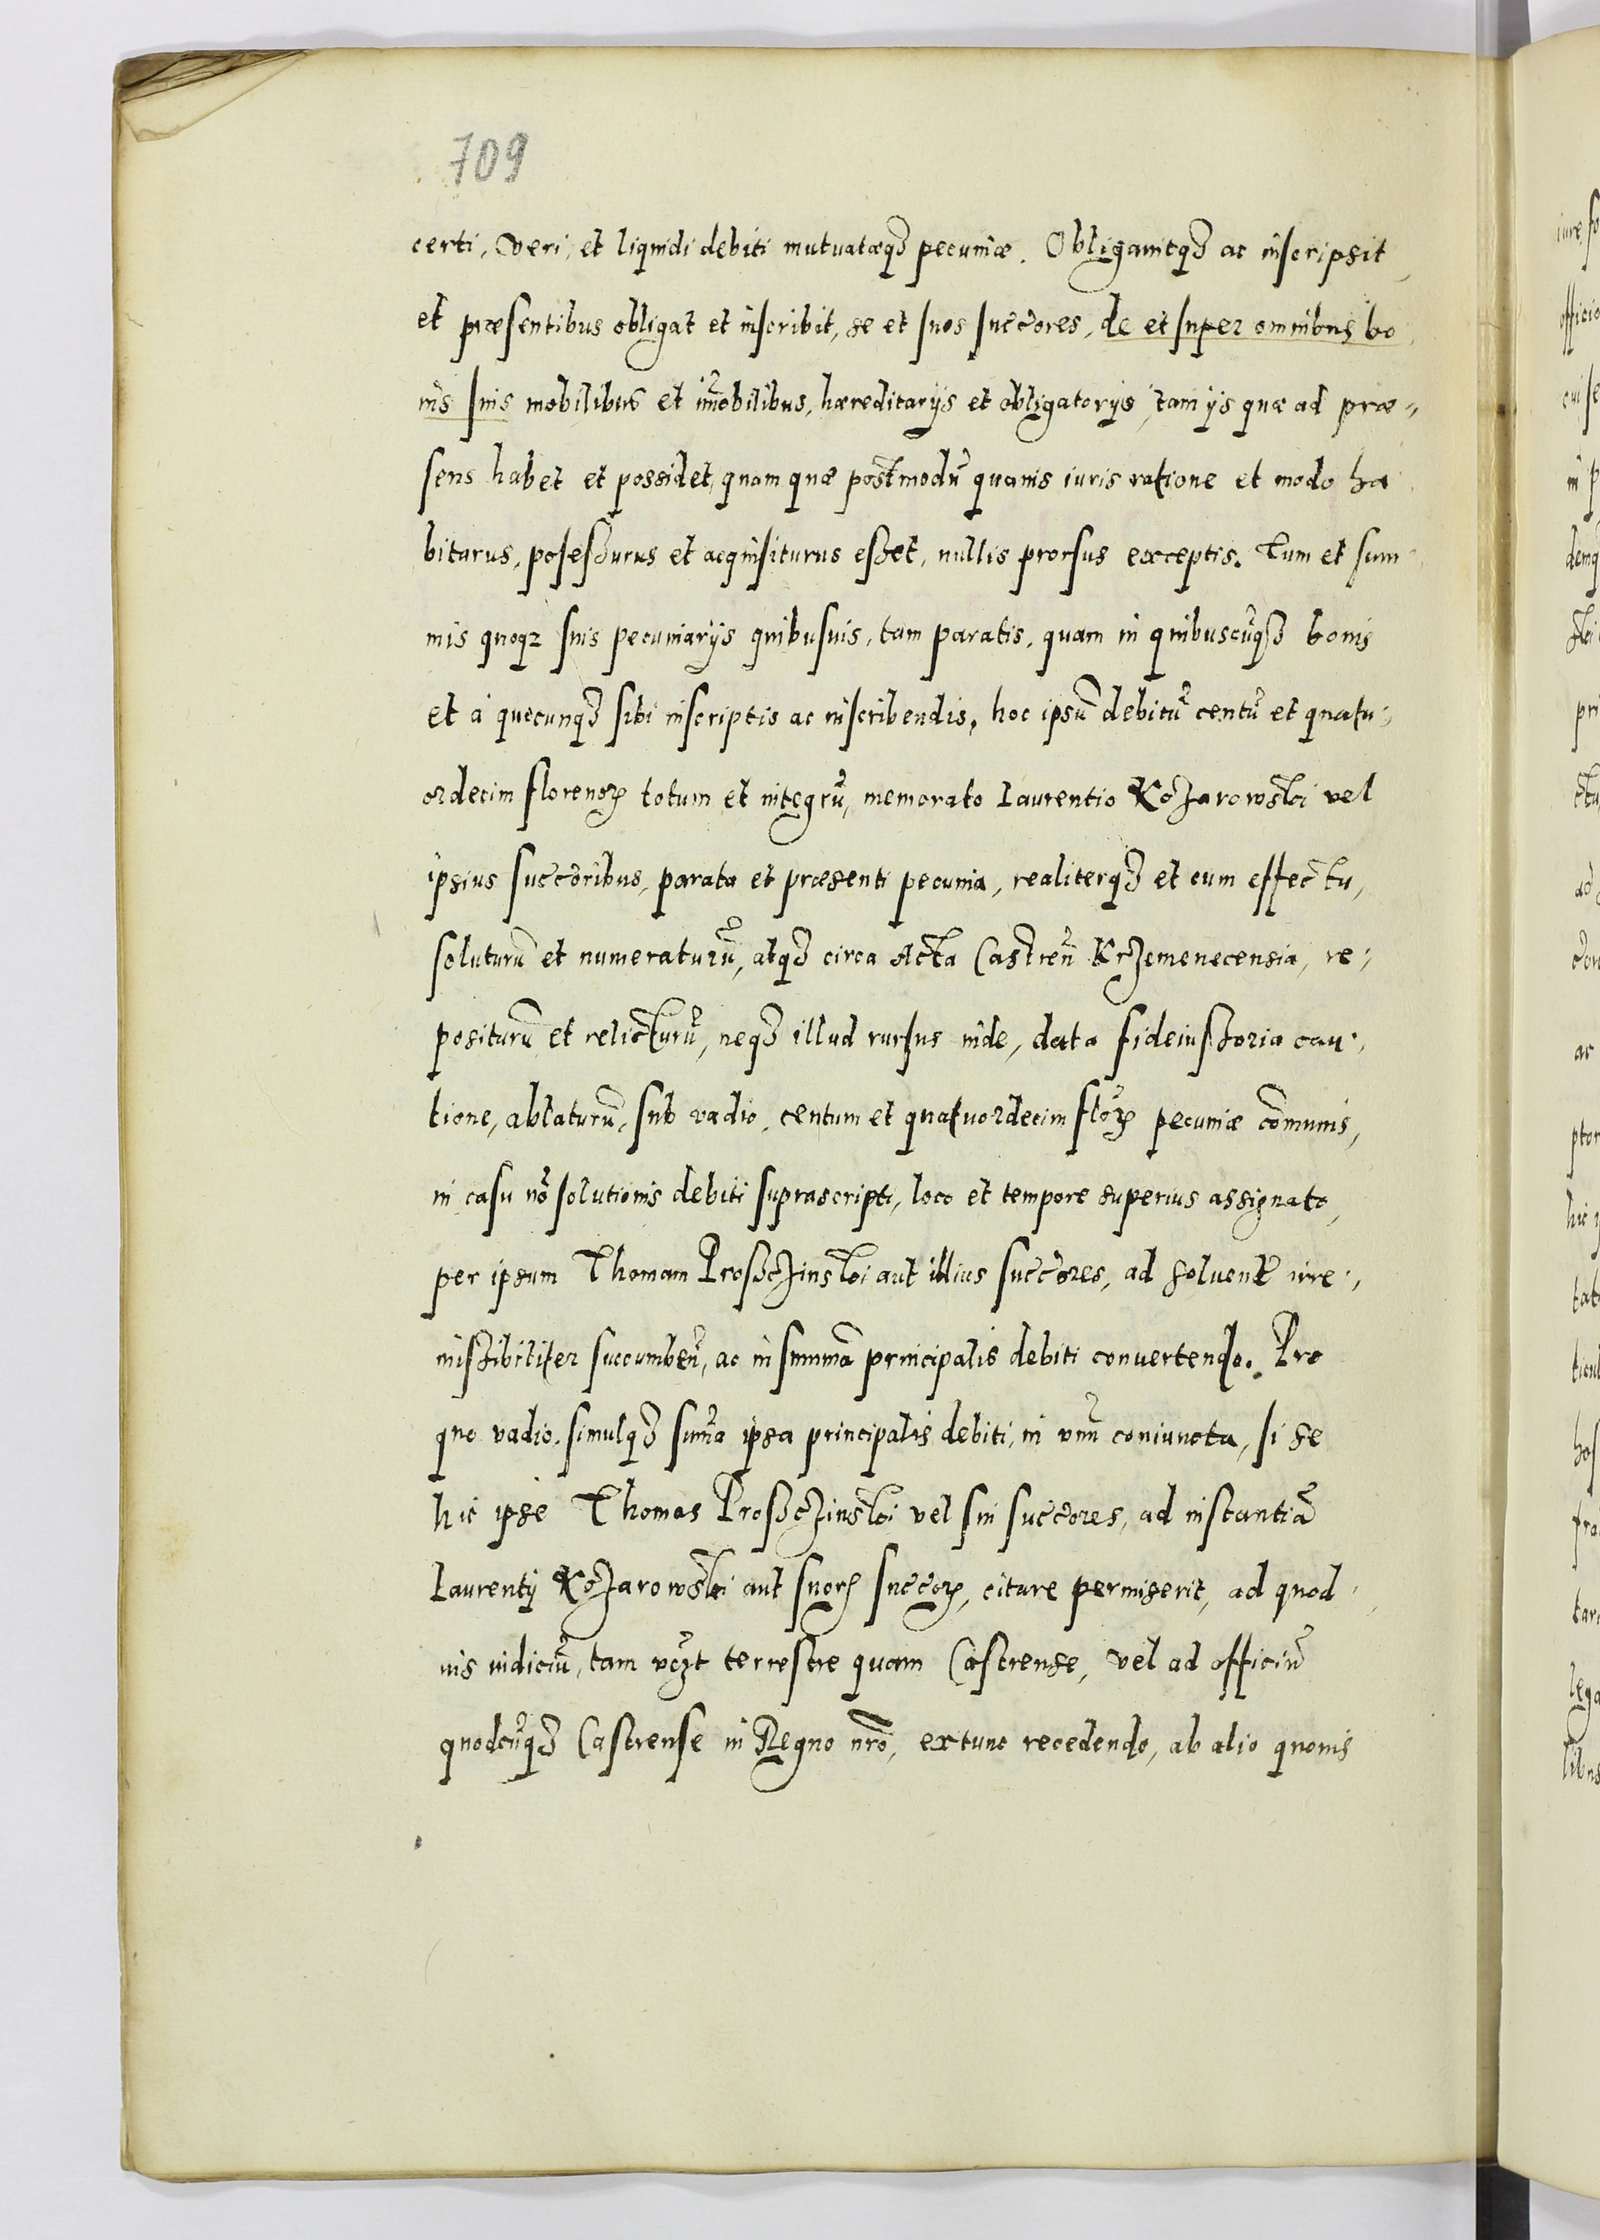 709
certi, veri, et liquidi debiti mutuatæq3 pecuniæ. Obligauitq3 ac inscripsit,
et præsentibus obligat et inscribit, se et suos succ̃ores, de et super omnibus bo
nis suis mobilibus et im̃obilibus, hæreditarijs et obligatorijs, tam ijs quæ ad præ-
sens habet et possidet, quam quæ postmodũ quauis iuris ratione et modo ha
biturus, possessurus et acquisiturus esset, nullis prorsus exceptis. Tum et sum
mis quoq3 suis pecuniarijs quibusuis, tam paratis, quam in quibuscũq3 bonis
et à quocunq3 sibi inscriptis ac inscribendis, hoc ipsũ debitũ centũ et quatu-
ordecim florenoꝝ totum et integrũ, memorato Laurentio Kozarowski vel
ipsius succ̃oribus, parata et præsenti pecunia, realiterq3 et cum effectu,
soluturũ et numeraturũ, atq3 circa Acta Castreñ Krzemenecensia, re-
positurũ et relicturũ, neq3 illud rursus inde, data fideiussoria cau-
tione, ablaturũ, sub vadio, centum et quatuordecim flõꝝ pecuniæ com̃unis,
in casu nõ solutionis debiti suprascripti, loco et tempore superius assignato,
per ipsum Thomam Proszczinski aut illius succ̃ores, ad soluenđ irre-
missibiliter succumbeñ, ac in summã principalis debiti conuertendo. Pro
quo vadio, simulq3 sum̃a ipsa principalis debiti, in vnũ coniuncta, si se
hic ipse Thomas Proszczinski vel sui succ̃ores, ad instantiã
Laurentij Kozarowski aut suoꝝ succ̃oꝝ, citare permiserit, ad quod
uis iudiciũ, tam vcz̃t terrestre quam Castrense, vel ad officiũ
quodcũq3 Castrense in Regno nrõ, extunc recedendo, ab alio quouis